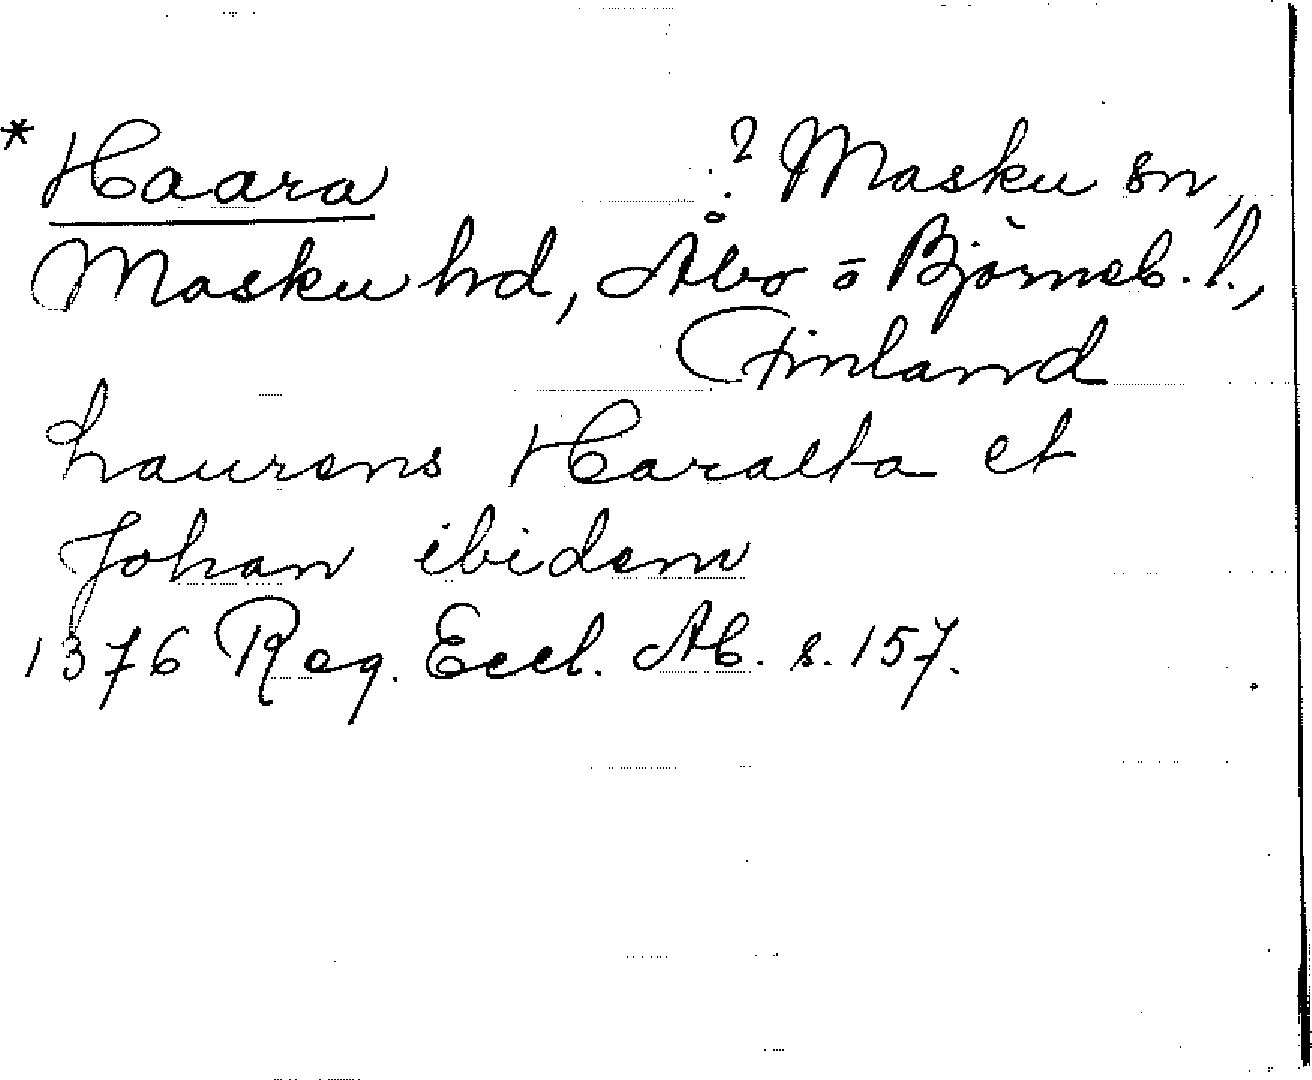 * Haara ? Masku sn,
Masku hd, Åbo o Björneb. l.,
Finland
Laurens Haralta et
Johan ibidem
1376 Reg. Eccl. Ab. s. 157.